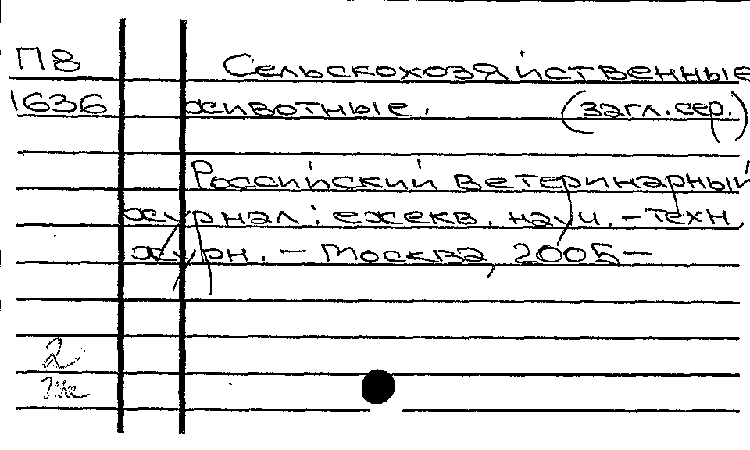 П8 Сельскохозяйственные
1636 животные. (загл. сер.)
Российский ветеринарный
журнал: ежекв. науч.-техн.
журн. — Москва, 2005—
2